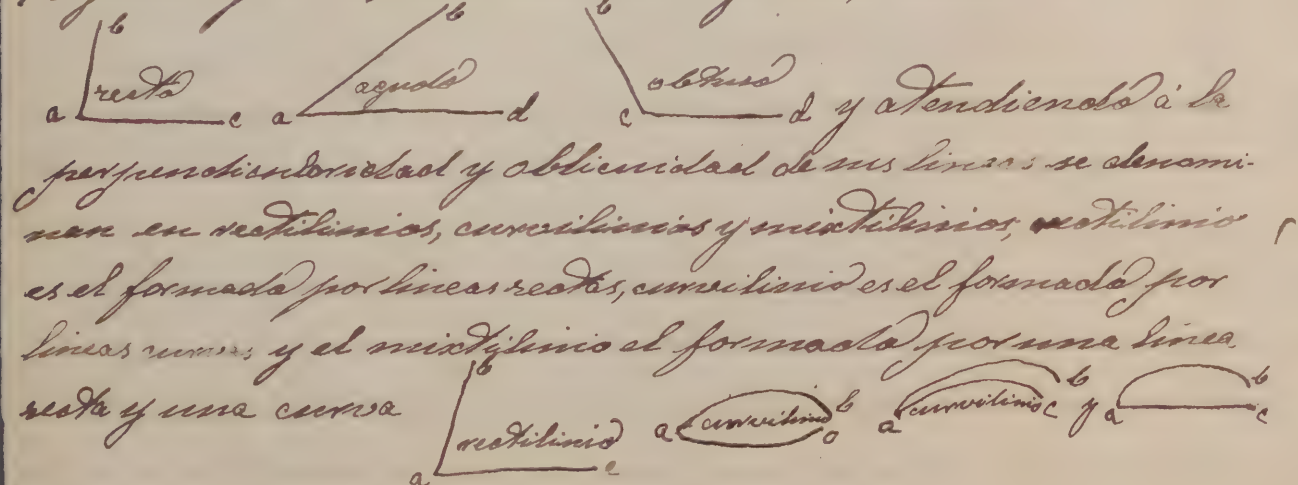 b b b
recto agudo obtuso
a c a d c d y atendiendo á la
perpendicularidad y oblicuidad de sus lineas se denomi-
nan en rectilinios, curvilinios y mixtilinios, rectilinio
es el formado por lineas rectas, curvilinio es el formado por
lineas curvas y el mixtilinio el formado por una linea
recta y una curva
b
rectilinio
a c
a curvilinio b o
a curvilinio b c y a b c